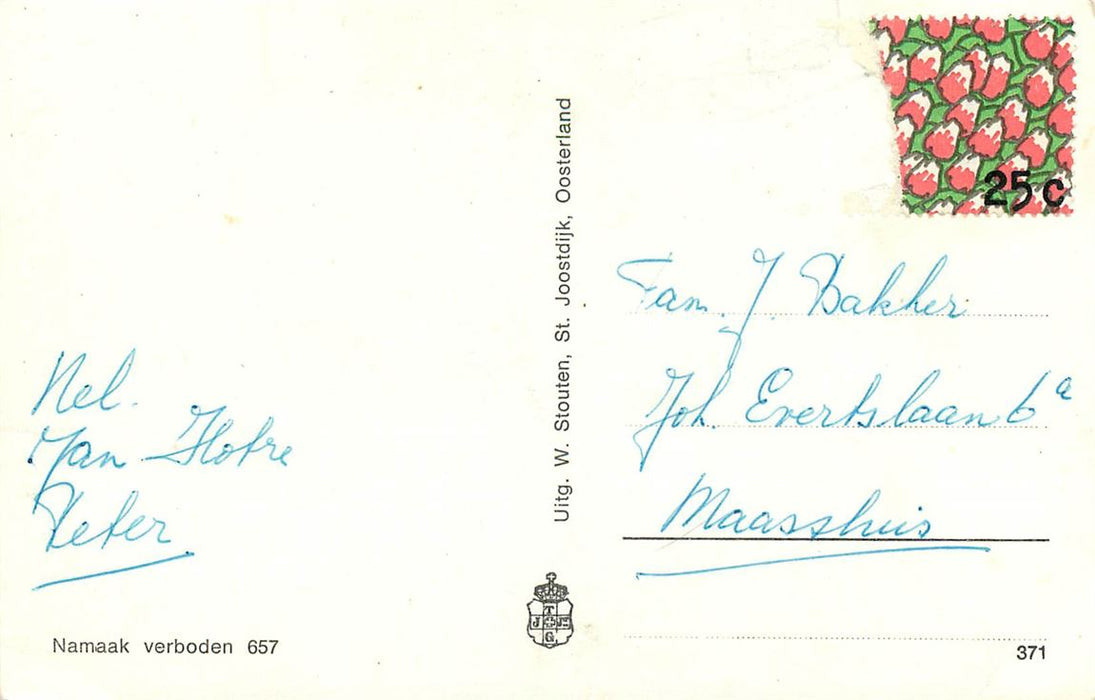 Nel.
Jan
Peter
Namaak verboden 657
Uitg. W. Stouten, St. Joostdijk, Oosterland
25 c
Fam. J. Bakker
Joh. Evertslaan 6a
Maasshuis
371